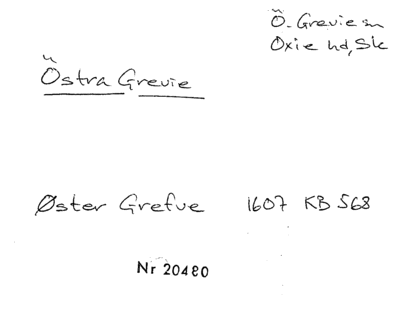 Ö. Grevie sn
Oxie hd, Sk
Östra Grevie
Øster Grefve 1607 KB 568
Nr 20480